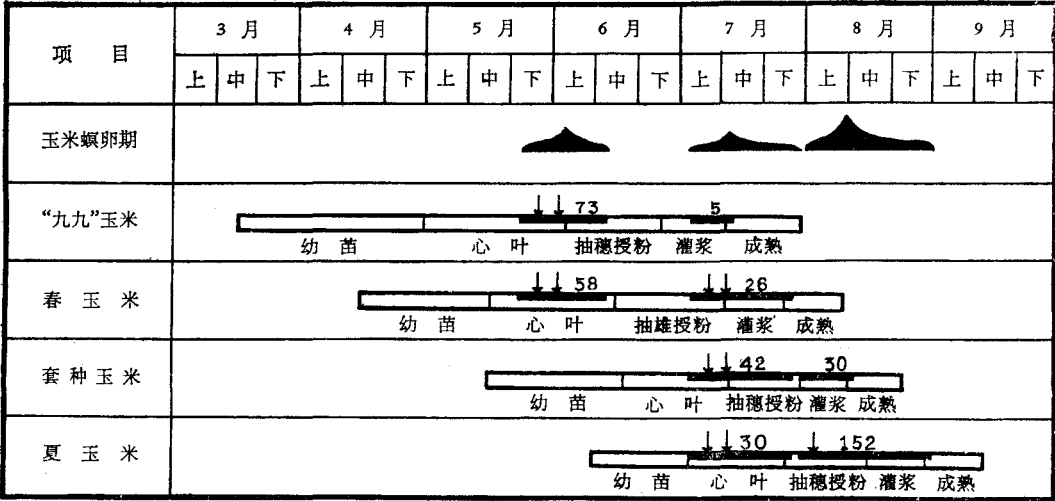 项 目
3 月 4 月 5 月 6 月 7 月 8 月 9 月
上 中 下 上 中 下 上 中 下 上 中 下 上 中 下 上 中 下 上 中 下
玉米螟卵期
“九九”玉米
73 5
幼 苗 心 叶 抽穗授粉 灌浆 成熟
春 玉 米
58 26
幼 苗 心 叶 抽雄授粉 灌浆 成熟
套 种 玉 米
42 30
幼 苗 心 叶 抽穗授粉 灌浆 成熟
夏 玉 米
30 152
幼 苗 心 叶 抽穗授粉 灌浆 成熟